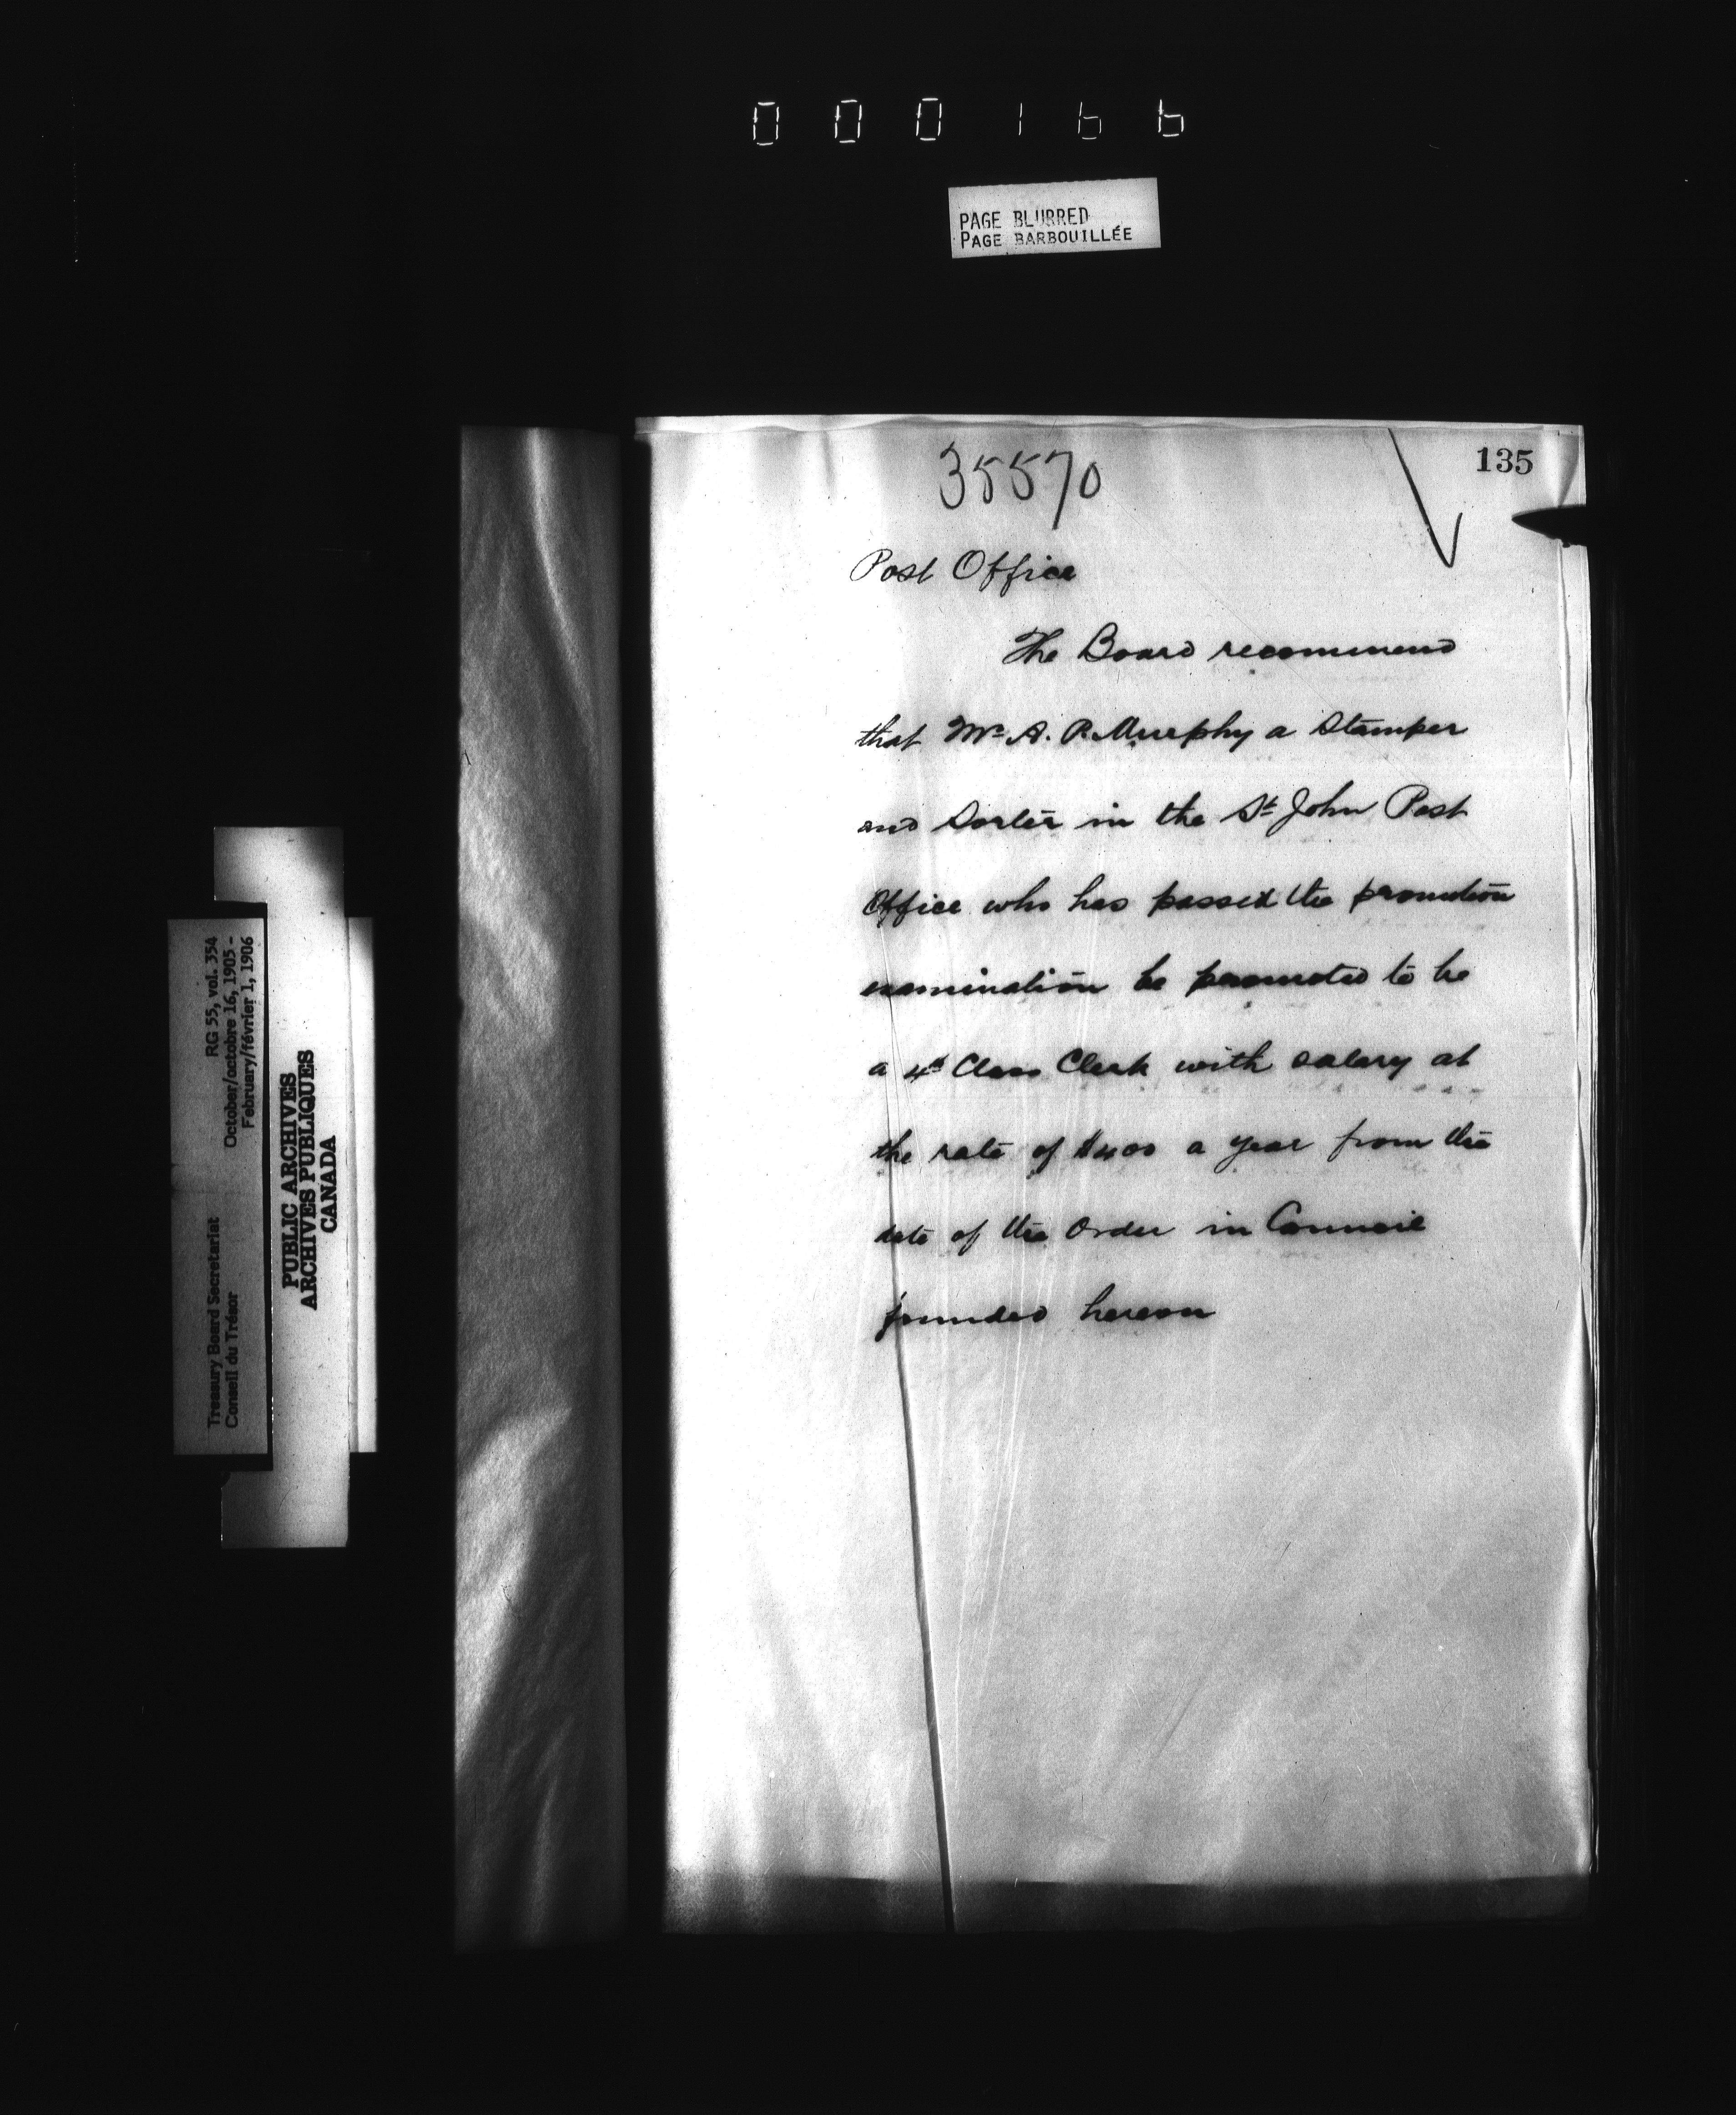 000166
PAGE BLURRED
PAGE BARBOUILLÉE
135
35570
Post Office
The Board recommend
that Mr A. P. Murphy a Stamper
and Sorter in the St John Post
Office who has passed the promotion
examination be promoted to be
a 4th Class Clerk with salary at
the rate of $400 a year from the
date of the Order in Council
founded hereon
Treasury Board Secretariat RG 55, vol. 354
Conseil du Trésor October/octobre 16, 1905 -
February/février 1, 1906
PUBLIC ARCHIVES
ARCHIVES PUBLIQUES
CANADA